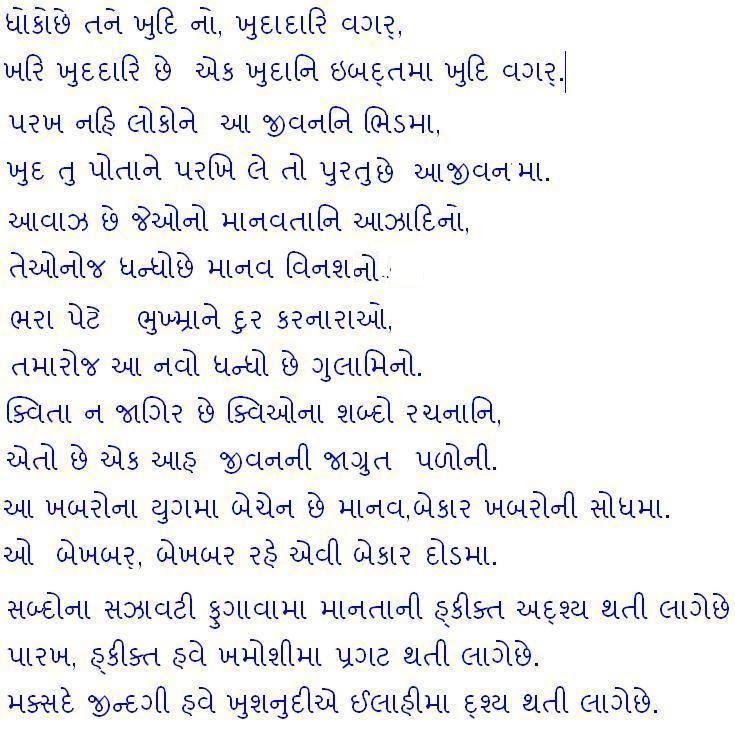 ધોકોછે તને ખુદિ નો, ખુદાદારિ વગર્,
ખરિ ખુદદારિ છે એક ખુદાનિ ઇબદ્તમા ખુદિ વગર્.
પરખ નહિ લોકોને આ જીવનનિ ભિડમા,
ખુદ તુ પોતાને પરખિ લે તો પુરતુછે આજીવનમા.
આવાઝ છે જેઓનો માનવતાનિ આઝાદિનો,
તેઓનોજ ધન્ધોછે માનવ વિનશનો.
ભરા પેટે ભુખ્મ્રાને દુર કરનારાઓ,
તમારોજ આ નવો ધન્ધો છે ગુલામિનો.
ક્વિતા ન જાગિર છે ક્વિઓના શબ્દો રચનાનિ,
એતો છે એક આહ્ જીવનની જાગ્રુત પળોની.
આ ખબરોના યુગમા બેચેન છે માનવ,બેકાર ખબરોની સોધમા.
ઓ બેખબર્, બેખબર રહે એવી બેકાર દોડમા.
સબ્દોના સઝાવટી ફુગાવામા માનતાની હ્કીક્ત અદ્શ્ય થતી લાગેછે
પારખ, હ્કીક્ત હવે ખમોશીમા પ્રગટ થતી લાગેછે.
મક્સદે જીન્દગી હવે ખુશનુદીએ ઈલાહીમા દ્શ્ય થતી લાગેછે.